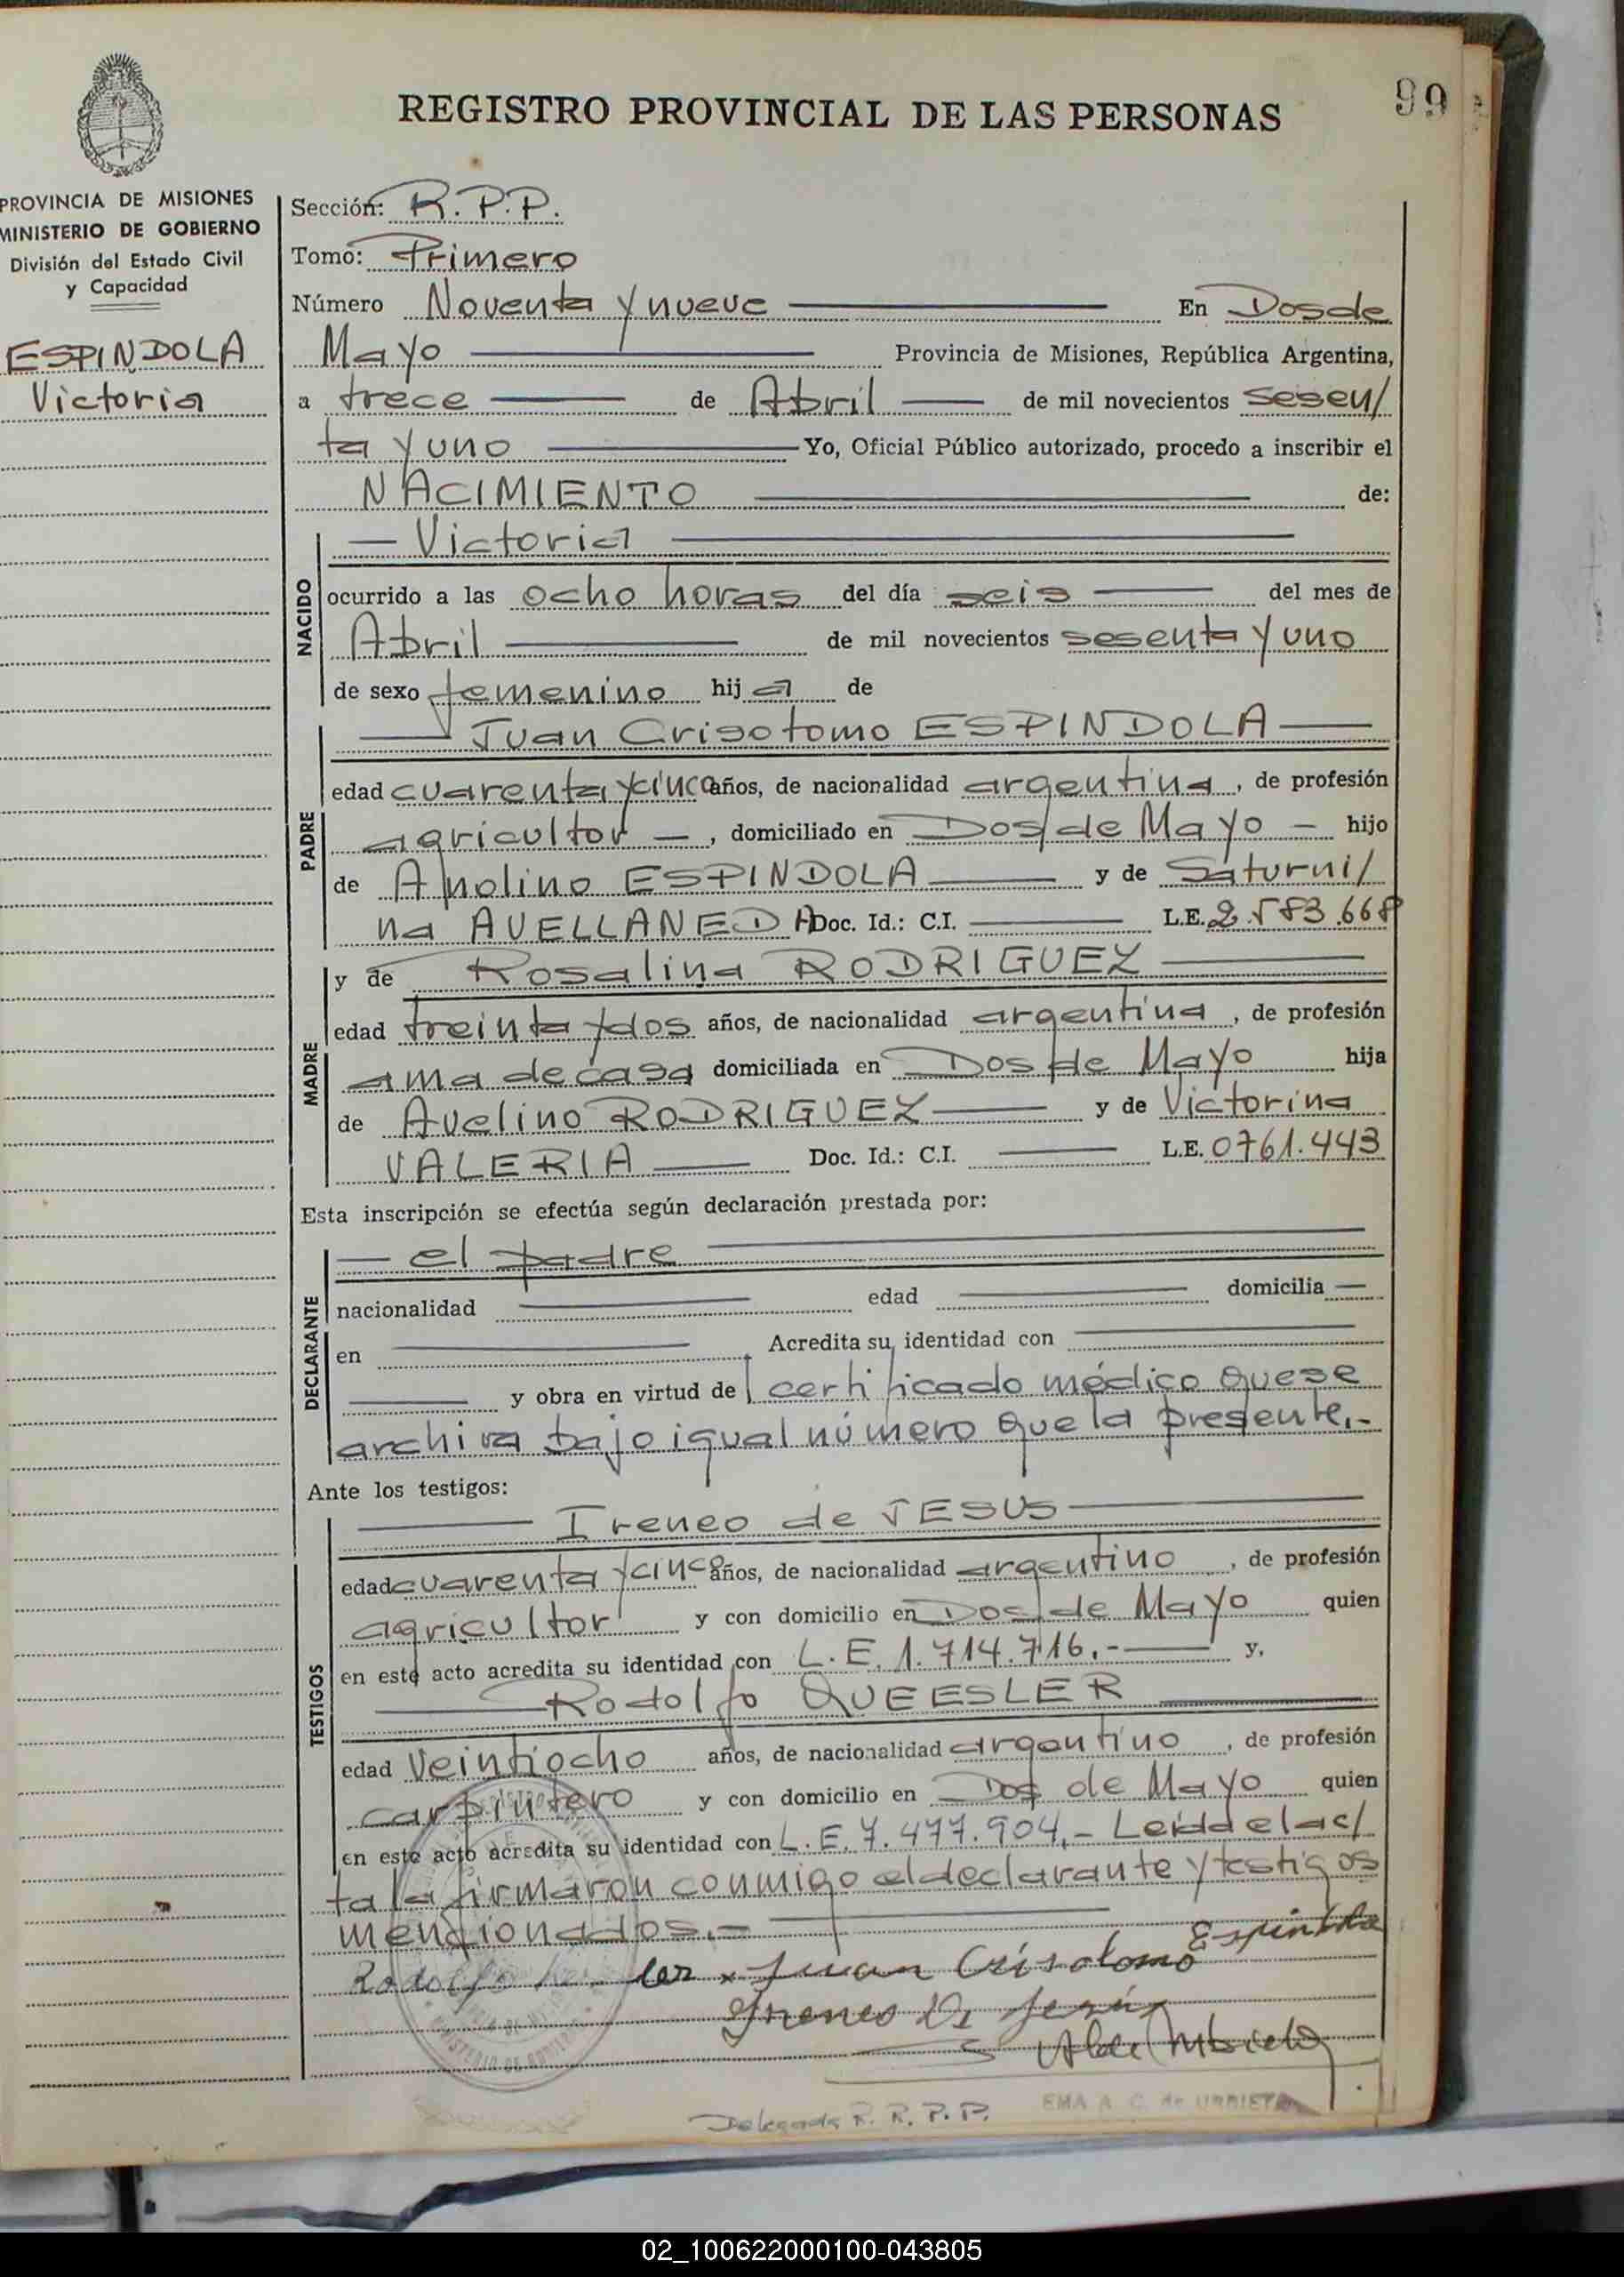 REGISTRO PROVINCIAL DE LAS PERSONAS
99
PROVINCIA DE MISIONES
MINISTERIO DE GOBIERNO
División del Estado Civil
y Capacidad
ESPINDOLA
Victoria
Sección: R.P.P.
Tomo: Primero
Número Noventa y nueve En Dos de
Mayo Provincia de Misiones, República Argentina,
a trece de Abril de mil novecientos sesen/
ta y uno Yo, Oficial Público autorizado, procedo a inscribir el
NACIMIENTO de:
NACIDO
Victoria
ocurrido a las ocho horas del día seis del mes de
Abril de mil novecientos sesenta y uno
de sexo femenino hija de
PADRE
Juan Crisotomo ESPINDOLA
edad cuarenta y cinco años, de nacionalidad argentina, de profesión
agricultor, domiciliado en Dos de Mayo hijo
de ESPINDOLA y de Saturni/
na AVELLANEDA Doc. Id.: C.I. L.E. 2.583.668
MADRE
y de Rosalina RODRIGUEZ
edad treinta y dos años, de nacionalidad argentina, de profesión
ama de casa domiciliada en Dos de Mayo hija
de Avelino RODRIGUEZ y de Victorina
VALERIA Doc. Id.: C.I. L.E. 0761.443
Esta inscripción se efectúa según declaración prestada por:
DECLARANTE
el padre
nacionalidad edad domicilia
en Acredita su identidad con
y obra en virtud de certificado médico que se
archiva bajo igual número que la presente.-
Ante los testigos:
TESTIGOS
Ireneo de JESUS
edad cuarenta y cinco años, de nacionalidad argentino, de profesión
agricultor y con domicilio en Dos de Mayo quien
en este acto acredita su identidad con L.E. 1.714.716.- y,
Rodolfo QUEESLER
edad veintiocho años, de nacionalidad argentino, de profesión
carpintero y con domicilio en Dos de Mayo quien
en este acto acredita su identidad con L.E. 7.477.904.- Leída el ac/
ta la firmaron conmigo el declarante y testigos
mencionados.-
Espindola
Rodolfo Juan Crisotomo
Ireneo De Jesús
Delegada R. R. P. P. EMA A. C. de URRIETA
02_100622000100-043805